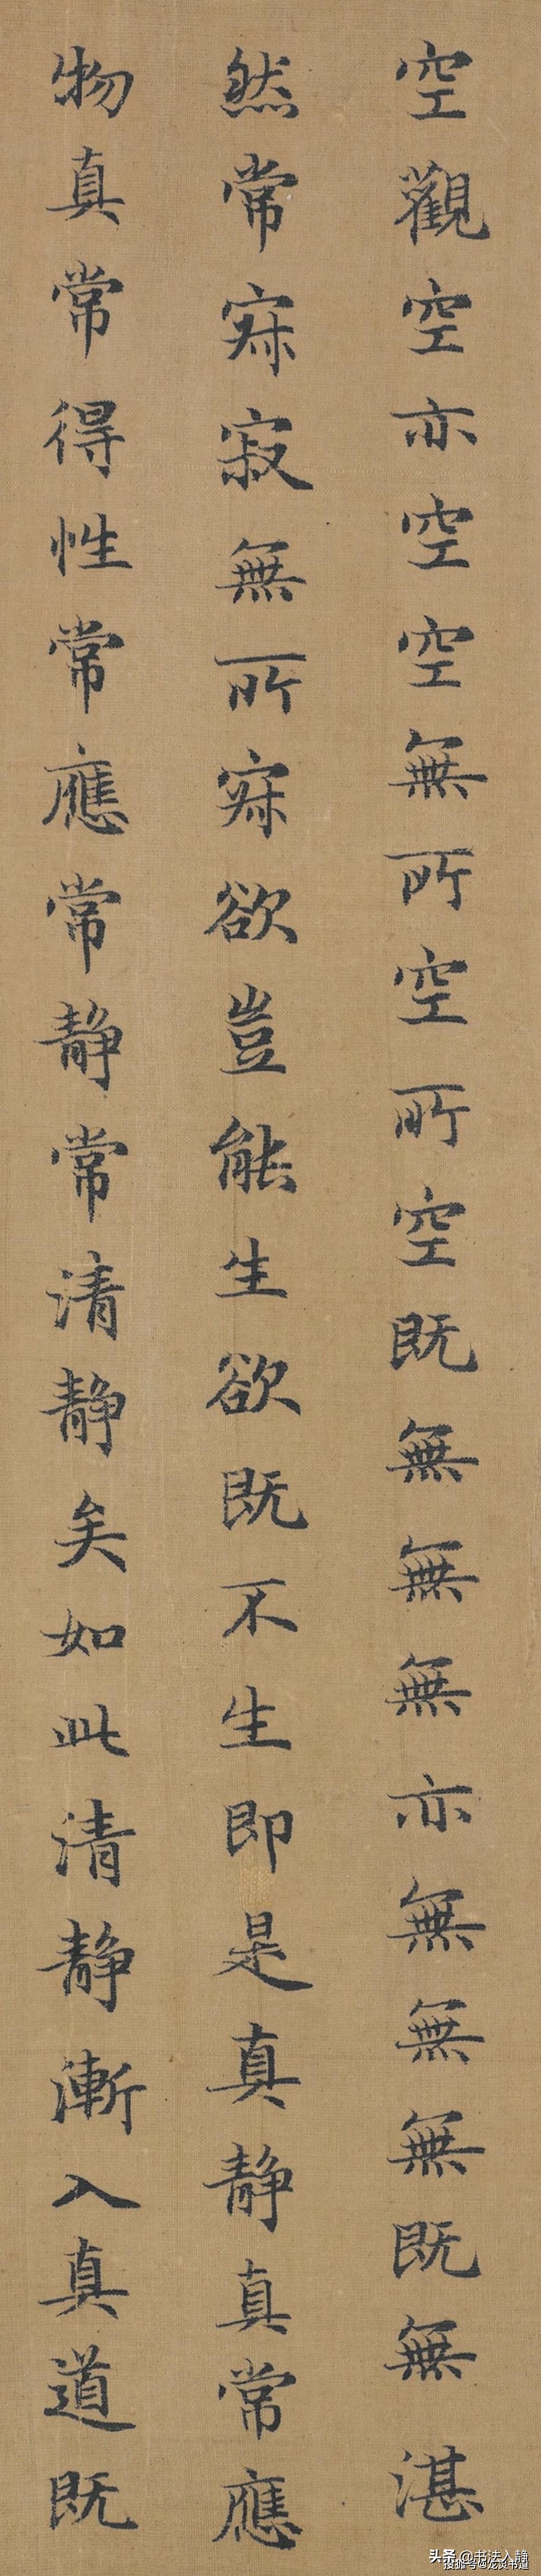 空觀空亦空空無所空所空既無無無亦無無無既無湛
然常寂寂無所寂欲豈能生欲既不生即是真静真常應
物真常得性常應常静常清静矣如此清静漸入真道既
头条 @书法入静
搜狐号@